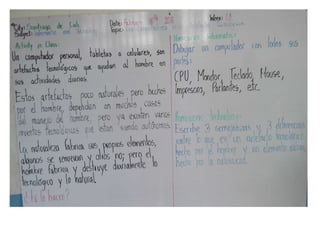 City: Santiago de Cali
Subject: Informatic and
Date: February 18th
Week: 
Topic:
Activity in Class:
Un computador personal, tabletas o celulares, son
artefactos tecnológicos que ayudan al hombre en
sus actividades diarias.
Estos artefactos poco naturales pero hechos
por el hombre, dependían en muchos casos
del manejo del hombre, pero ya existen varios
inventos tecnológicos que están siendo autónomos.
La naturaleza fabrica sus propios elementos,
algunos se renuevan y otros no; pero el
hombre fabrica y destruye diariamente lo
tecnológico y lo natural.
¿Tú lo harías?
Dibujar un computador con todas sus
partes:
CPU, Monitor, Teclado, Mouse,
Impresora, Parlantes, etc.
Escribe 3 semejanzas y 3 diferencias
entre lo que es un artefacto tecnológico
hecho por el hombre y un elemento
hecho por la naturaleza.